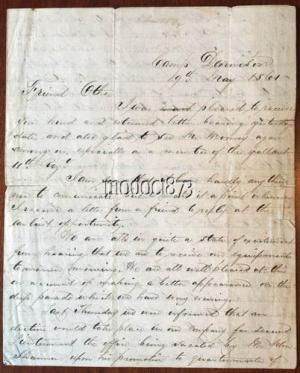 Camp Dennison
19th May 1861
Friend Otho
I was pleased to receive
your kind and interesting letter bearing yesterdays
date, and also glad to see Mr. again
among us, especially as a member of the gallant
11th Regt.
I am hardly anything
new to communicate it a point when
I receive a letter from a friend to reply at the
earliest opportunity.
We are all in quite a state of excitement
from hearing that we are to receive our equipments
to-morrow morning. We are all well pleased at this
on account of making a better appearance on the
dress parade which we have every evening.
Last Thursday we were informed that an
election would take place in our company for second
Lieutenant the office being vacated by Mr. John
upon his promotion to quartermaster of
modoc1873